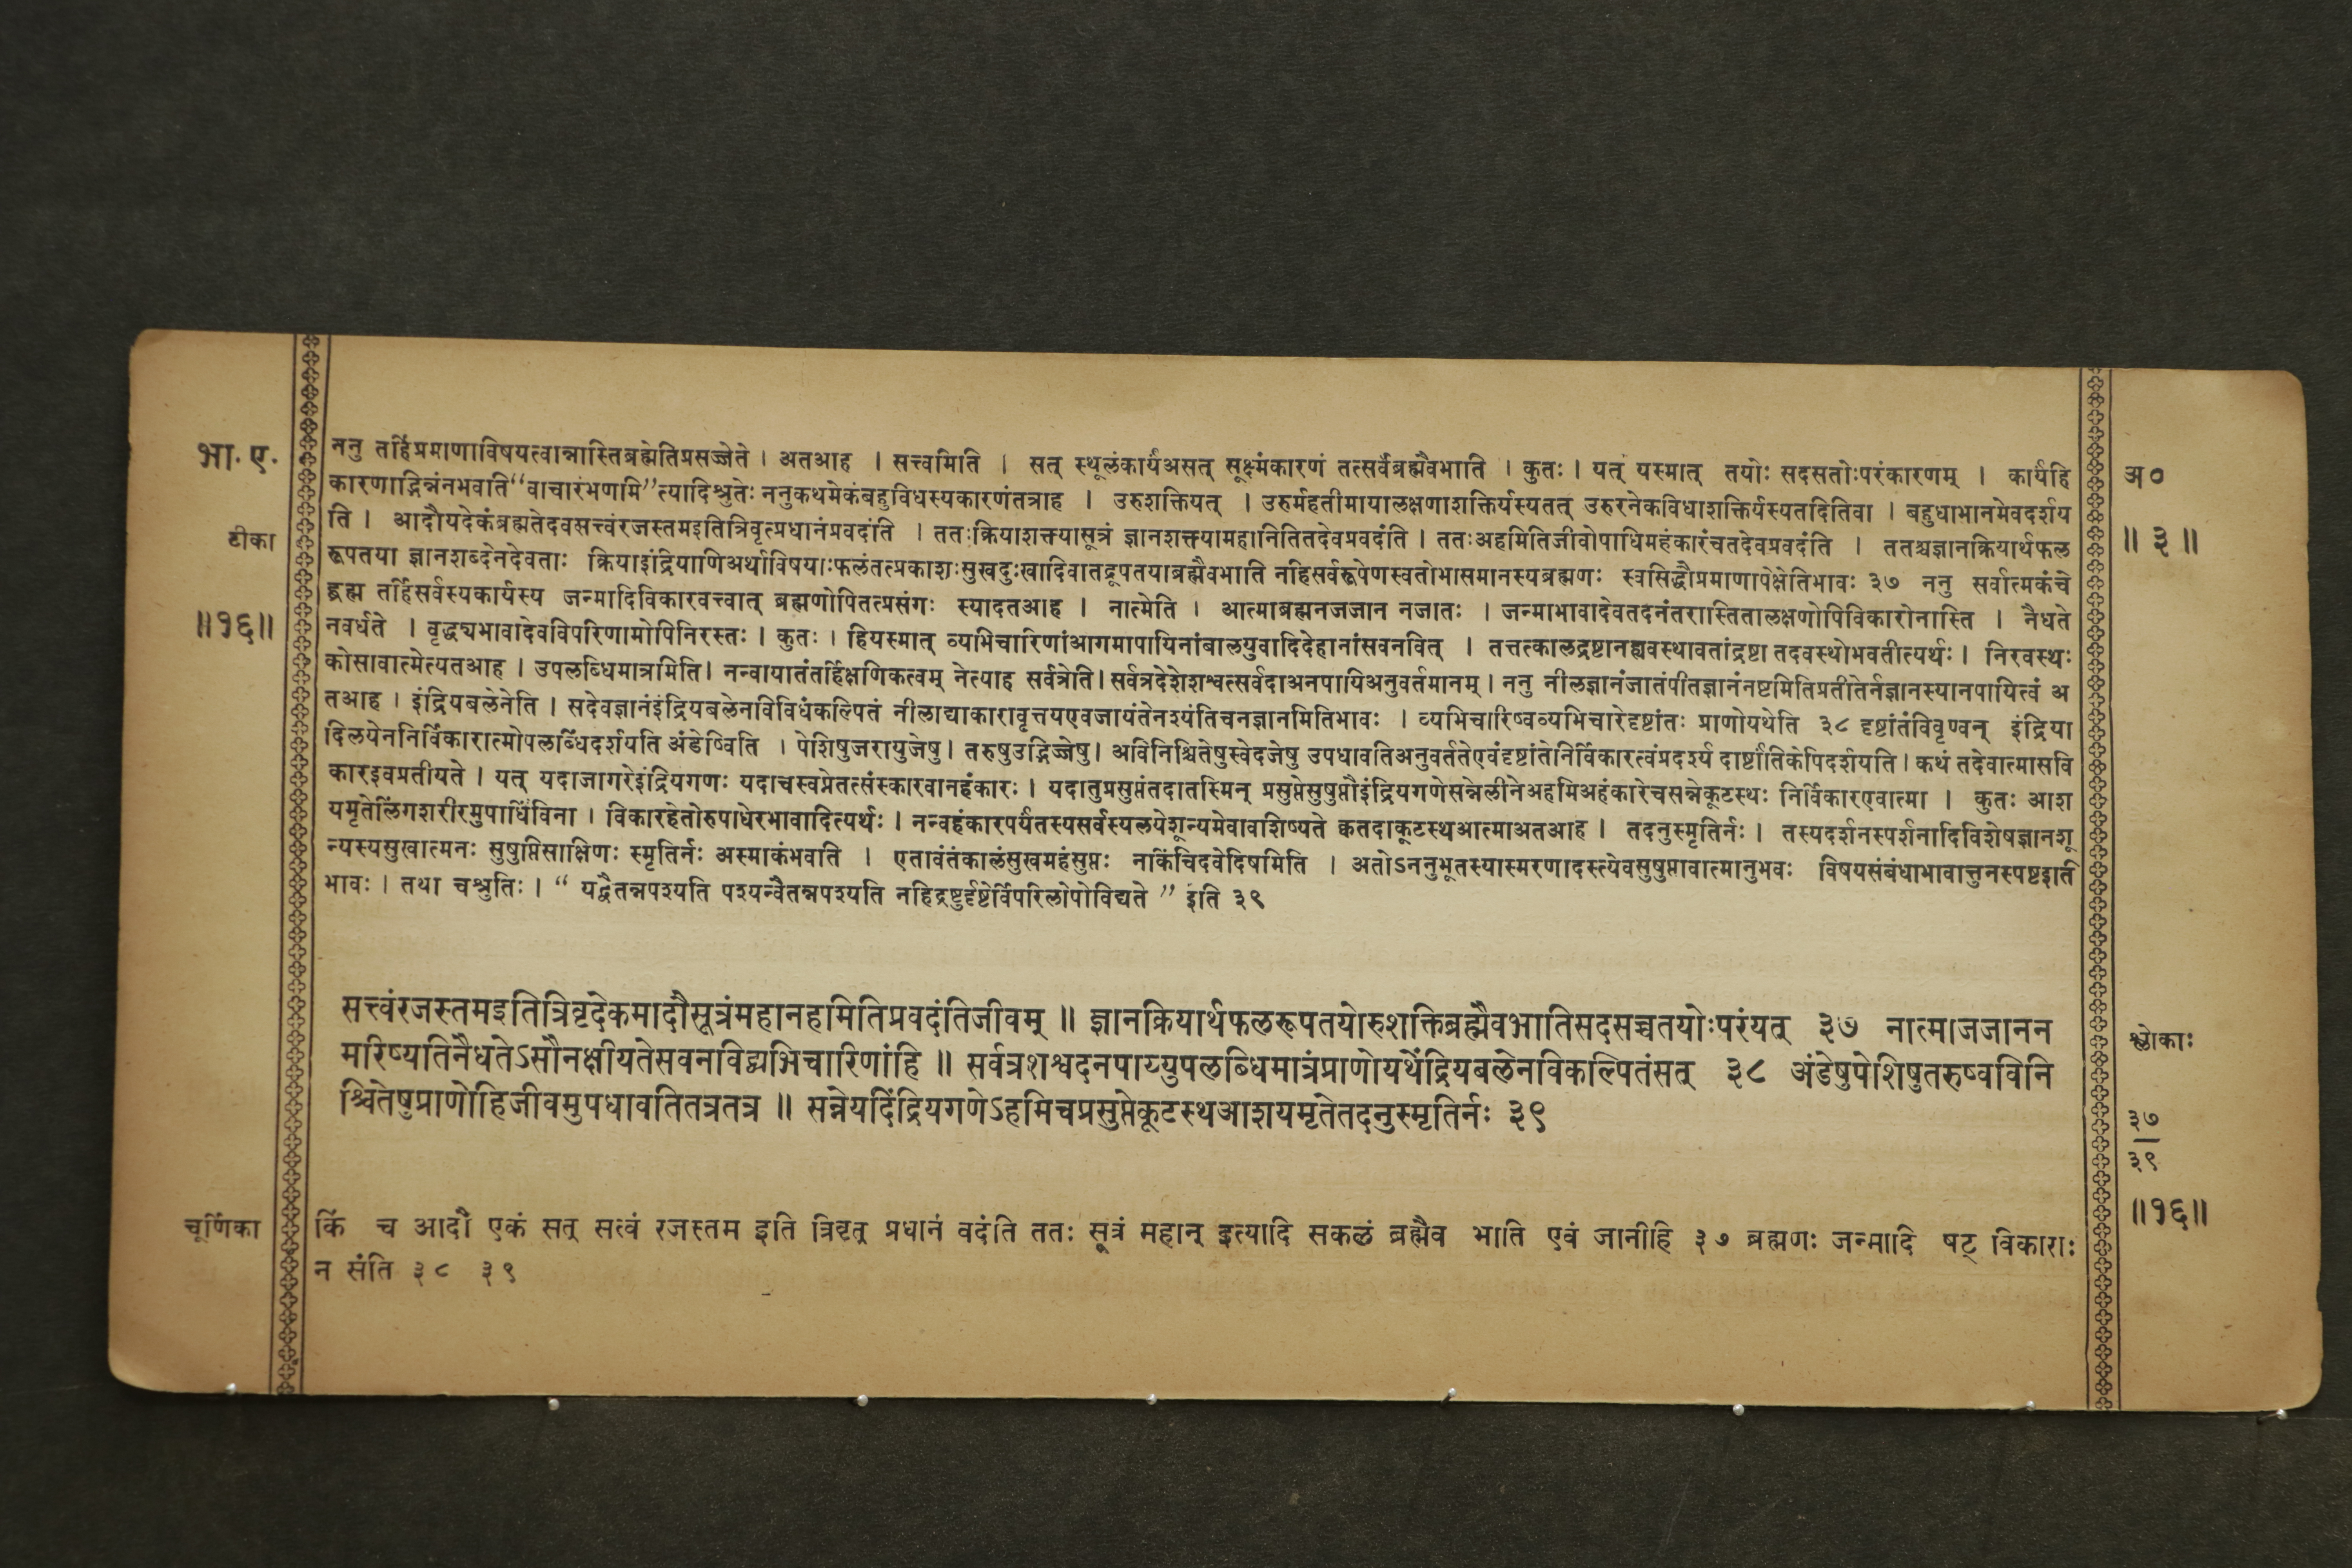 भा. ए.
टीका
॥१६॥
ननु तर्हिप्रमाणाविषयत्वान्नास्तिब्रह्मेतिप्रसज्जेते । अतआह । सत्त्वमिति । सत् स्थूलंकार्यंअसत् सूक्ष्मंकारणं तत्सर्वंब्रह्मैवभाति । कुतः । यत् यस्मात् तयोः सदसतोःपरंकारणम् । कार्यंहि
कारणाद्भिन्नंनभवाति “वाचारंभणमि”त्यादिश्रुतेः ननुकथमेकंबहुविधस्यकारणंतत्राह । उरुशक्तियत् । उरुर्महतीमायालक्षणाशक्तिर्यस्यतत् उरुरनेकविधाशक्तिर्यस्यतदितिवा । बहुधाभानमेवदर्शय
ति । आदौयदेकंब्रह्मतेदवसत्त्वंरजस्तमइतित्रिवृत्प्रधानंप्रवदंति । ततःक्रियाशक्त्यासूत्रं ज्ञानशक्त्यामहानितितदेवप्रवदंति । ततःअहमितिजीवोपाधिमहंकारंचतदेवप्रवदंति । ततश्चज्ञानक्रियार्थफल
रूपतया ज्ञानशब्देनदेवताः क्रियाइंद्रियाणिअर्थाविषयाःफलंतत्प्रकाशःसुखदुःखादिवातद्रूपतयाब्रह्मैवभाति नहिसर्वरूपेणस्वतोभासमानस्यब्रह्मणः स्वसिद्धौप्रमाणापेक्षेतिभावः ३७ ननु सर्वात्मकंचे
द्ब्रह्म तर्हिसर्वस्यकार्यस्य जन्मादिविकारवत्त्वात् ब्रह्मणोपितत्प्रसंगः स्यादतआह । नात्मेति । आत्माब्रह्मनजजान नजातः । जन्माभावादेवतदनंतरास्तितालक्षणोपिविकारोनास्ति । नैधते
नवर्धते । वृद्ध्यभावादेवविपरिणामोपिनिरस्तः । कुतः । हियस्मात् व्यभिचारिणांआगमापायिनांबालयुवादिदेहानांसवनवित् । तत्तत्कालद्रष्टानह्यवस्थावतांद्रष्टा तदवस्थोभवतीत्यर्थः । निरवस्थः
कोसावात्मेत्यतआह । उपलब्धिमात्रमिति। नन्वायातंतर्हिक्षणिकत्वम् नेत्याह सर्वत्रेति। सर्वत्रदेशेशश्वत्सर्वदाअनपायिअनुवर्तमानम् । ननु नीलज्ञानंजातंपीतज्ञानंनष्टमितिप्रतीतेर्नज्ञानस्यानपायित्वं अ
तआह । इंद्रियबलेनेति । सदेवज्ञानंइंद्रियबलेनविविधंकल्पितं नीलाद्याकारावृत्तयएवजायंतेनश्यंतिचनज्ञानमितिभावः । व्यभिचारिष्वव्यभिचारेदृष्टांतः प्राणोयथेति ३८ दृष्टांतंविवृण्वन् इंद्रिया
दिलयेननिर्विकारात्मोपलब्धिंदर्शयति अंडेष्विति । पेशिषुजरायुजेषु। तरुषुउद्भिज्जेषु। अविनिश्चितेषुस्वेदजेषु उपधावतिअनुवर्ततेएवंदृष्टांतेनिर्विकारत्वंप्रदर्श्य दार्ष्टांतिकेपिदर्शयति। कथं तदेवात्मासवि
कारइवप्रतीयते । यत् यदाजागरेइंद्रियगणः यदाचस्वप्नेतत्संस्कारवानहंकारः । यदातुप्रसुप्तंतदातस्मिन् प्रसुप्तेसुषुप्तौइंद्रियगणेसन्नेलीनेअहमिअहंकारेचसन्नेकूटस्थः निर्विकारएवात्मा । कुतः आश
यमृतेलिंगशरीरमुपाधिंविना । विकारहेतोरुपाधेरभावादित्यर्थः । नन्वहंकारपर्यंतस्यसर्वस्यलयेशून्यमेवावशिष्यते क्वतदाकूटस्थआत्माअतआह । तदनुस्मृतिर्नः । तस्यदर्शनस्पर्शनादिविशेषज्ञानशू
न्यस्यसुखात्मनः सुषुप्तिसाक्षिणः स्मृतिर्नः अस्माकंभवाति । एतावंतंकालंसुखमहंसुप्तः नाकिंचिदवेदिषमिति । अतोऽननुभूतस्यास्मरणादस्त्येवसुषुप्तावात्मानुभवः विषयसंबंधाभावात्तुनस्पष्टइति
भावः । तथा चश्रुतिः । “ यद्वैतन्नपश्यति पश्यन्वैतन्नपश्यति नहिद्रष्टुर्दृष्टेर्विपरिलोपोविद्यते ” इति ३९
अ०
॥ ३ ॥
सत्त्वंरजस्तमइतित्रिवृदेकमादौसूत्रंमहानहमितिप्रवदंतिजीवम् ॥ ज्ञानक्रियार्थफलरूपतयोरुशक्तिब्रह्मैवभातिसदसच्चतयोःपरंयत् ३७ नात्माजजानन
मरिष्यतिनैधतेऽसौनक्षीयतेसवनविद्व्यभिचारिणांहि ॥ सर्वत्रशश्वदनपाय्युपलब्धिमात्रंप्राणोयथेंद्रियबलेनविकल्पितंसत् ३८ अंडेषुपेशिषुतरुष्वविनि
श्चितेषुप्राणोहिजीवमुपधावतितत्रतत्र ॥ सन्नेयदिंद्रियगणेऽहमिचप्रसुप्तेकूटस्थआशयमृतेतदनुस्मृतिर्नः ३९
श्लोकाः
३७
३९
॥१६॥
चूर्णिका
किं च आदौ एकं सत् सत्वं रजस्तम इति त्रिवृत् प्रधानं वदंति ततः सूत्रं महान् इत्यादि सकळं ब्रह्मैव भाति एवं जानीहि ३७ ब्रह्मणः जन्मादि षट् विकाराः
न संति ३८ ३९